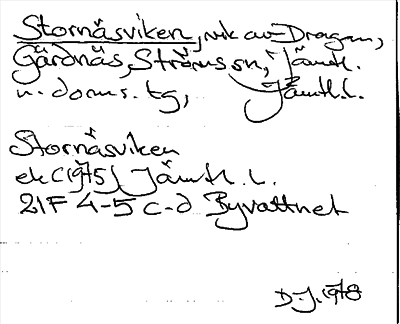 Stornäsviken, vik av Dragan,
Gärdnäs, Ströms sn, Jämtl.
n. doms. tg, Jämtl. l.
Stornäsviken
ek (1975) Jämtl. l.
21F 4-5 c-d Byvattnet
D-J. 1978